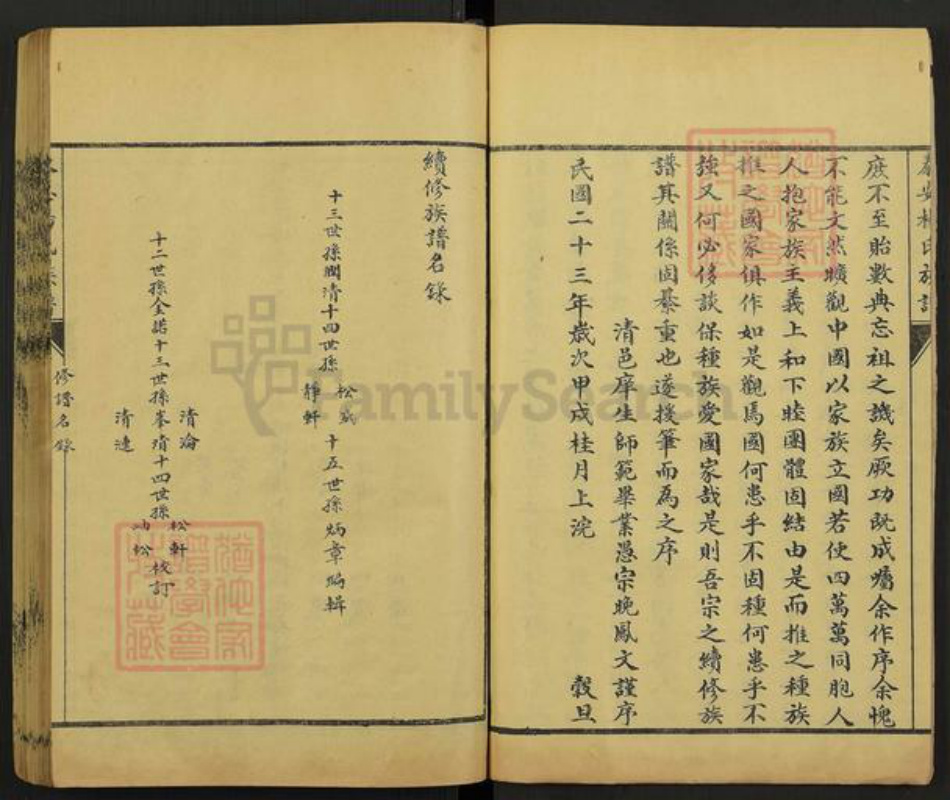 庶不至貽數典忘祖之譏矣厥功既成囑余作序余愧
不能文然曠觀中國以家族立國若使四萬萬同胞人
人抱家族主義上和下睦團體固結由是而推之種族
推之國家俱作如是觀焉國何患乎不固種何患乎不
強又何必侈談保種族愛國家哉是則吾宗之續修族
譜其關係固綦重也遂援筆而為之序
清邑庠生師範畢業愚宗晚鳳文謹序
民國二十三年歲次甲戌桂月上浣 穀旦
續修族譜名錄
十三世孫潤清十四世孫 松 靜軒 十五世孫炳章編輯
十二世孫金諾十三世孫 清淪 清漣 十四世孫 松軒 松 校訂
修譜名錄
FamilySearch